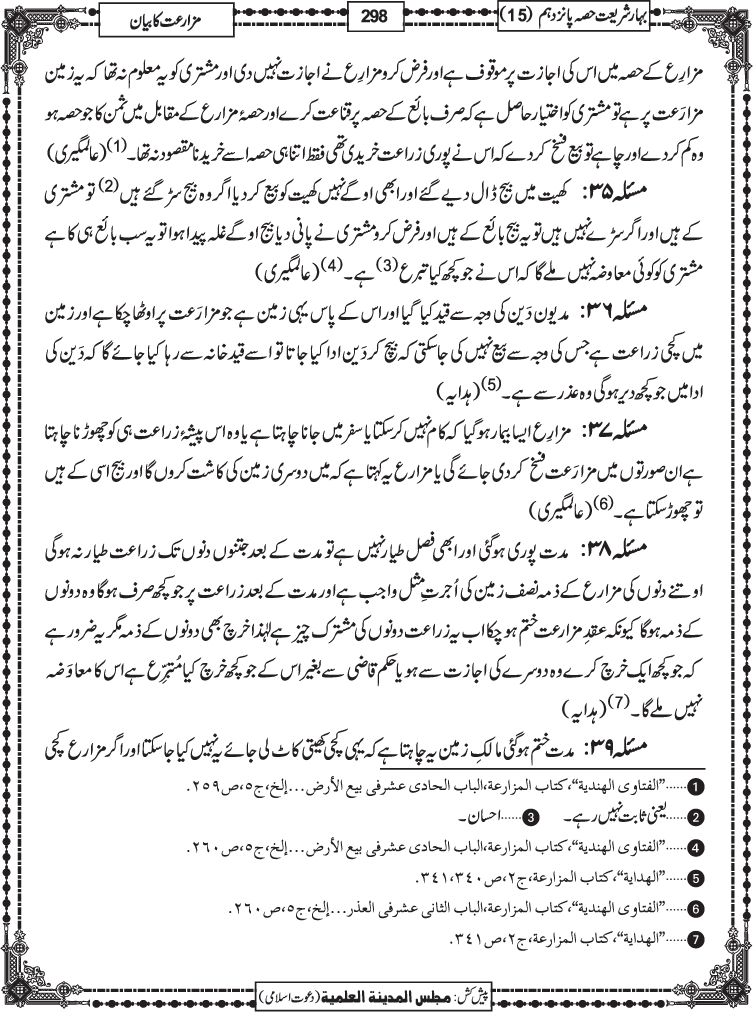 بہارِ شریعت حصہ پانزدہم (15)
298
مزارعت کا بیان
مزارع کے حصہ میں اس کی اجازت پر موقوف ہے اور فرض کرو مزارع نے اجازت نہیں دی اور مشتری کو یہ معلوم نہ تھا کہ یہ زمین
مزارَعت پر ہے تو مشتری کو اختیار حاصل ہے کہ صرف بائع کے حصہ پر قناعت کرے اور حصۂ مزارع کے مقابل میں ثمن کا جو حصہ ہو
وہ کم کر دے اور چاہے تو بیع فسخ کر دے کہ اس نے پوری زراعت خریدی تھی فقط اتنا ہی حصہ اسے خریدنا مقصود نہ تھا۔(1) (عالمگیری)
مسئلہ ۳۵: کھیت میں بیج ڈال دیے گئے اور ابھی اوگے نہیں کھیت کو بیع کر دیا اگر وہ بیج سڑ گئے ہیں(2) تو مشتری
کے ہیں اور اگر سڑے نہیں ہیں تو یہ بیج بائع کے ہیں اور فرض کرو مشتری نے پانی دیا بیج اوگے غلہ پیدا ہوا تو یہ سب بائع ہی کا ہے
مشتری کو کوئی معاوضہ نہیں ملے گا کہ اس نے جو کچھ کیا تبرع(3) ہے۔(4) (عالمگیری)
مسئلہ ۳۶: مدیون دَین کی وجہ سے قید کیا گیا اور اس کے پاس یہی زمین ہے جو مزارَعت پر اوٹھا چکا ہے اور زمین
میں کچی زراعت ہے جس کی وجہ سے بیع نہیں کی جا سکتی کہ بیچ کر دَین ادا کیا جاتا تو اسے قید خانہ سے رہا کیا جائے گا کہ دَین کی
ادا میں جو کچھ دیر ہوگی وہ عذر سے ہے۔(5) (ہدایہ)
مسئلہ ۳۷: مزارع ایسا بیمار ہوگیا کہ کام نہیں کر سکتا یا سفر میں جانا چاہتا ہے یا وہ اس پیشۂ زراعت ہی کو چھوڑنا چاہتا
ہے ان صورتوں میں مزارَعت فسخ کر دی جائے گی یا مزارع یہ کہتا ہے کہ میں دوسری زمین کی کاشت کروں گا اور بیج اسی کے ہیں
تو چھوڑ سکتا ہے۔(6) (عالمگیری)
مسئلہ ۳۸: مدت پوری ہوگئی اور ابھی فصل طیار نہیں ہے تو مدت کے بعد جتنوں دنوں تک زراعت طیار نہ ہوگی
اوتنے دنوں کی مزارع کے ذمہ نصف زمین کی اُجرتِ مثل واجب ہے اور مدت کے بعد زراعت پر جو کچھ صرف ہوگا وہ دونوں
کے ذمہ ہوگا کیونکہ عقدِ مزارعت ختم ہو چکا اب یہ زراعت دونوں کی مشترک چیز ہے لہٰذا خرچ بھی دونوں کے ذمہ مگر یہ ضرور ہے
کہ جو کچھ ایک خرچ کرے وہ دوسرے کی اجازت سے ہو یا حکم قاضی سے بغیر اس کے جو کچھ خرچ کیا مُتبرِّع ہے اس کا معاوَضہ
نہیں ملے گا۔(7) (ہدایہ)
مسئلہ ۳۹: مدت ختم ہوگئی مالکِ زمین یہ چاہتا ہے کہ یہی کچی کھیتی کاٹ لی جائے یہ نہیں کیا جا سکتا اور اگر مزارع کچی
1......"الفتاوی الهندية"، کتاب المزارعة، الباب الحادی عشر فی بیع الأرض...إلخ، ج٥، ص٢٥٩.
2......یعنی ثابت نہیں رہے۔ 3......احسان۔
4......"الفتاوی الهندية"، کتاب المزارعة، الباب الحادی عشر فی بیع الأرض...إلخ، ج٥، ص٢٦٠.
5......"الهداية"، کتاب المزارعة، ج٢، ص٣٤٠،٣٤١.
6......"الفتاوی الهندية"، کتاب المزارعة، الباب الثانی عشر فی العذر...إلخ، ج٥، ص٢٦٠.
7......"الهداية"، کتاب المزارعة، ج٢، ص٣٤١.
پیش کش: مجلس المدينة العلمية (دعوت اسلامی)